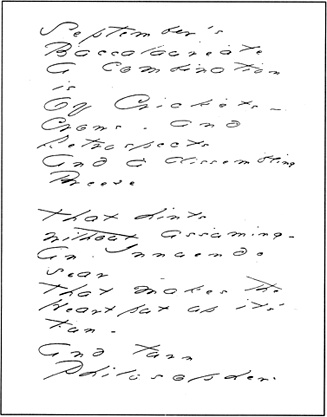 September's
Baccalaureate
A Combination
is
Of Crickets -
Crows - and
Retrospects
And a dissembling
Breeze
That hints
without assuming -
An Innuendo
sear
That makes the
Heart put up its
Fun -
And turn
Philosopher.